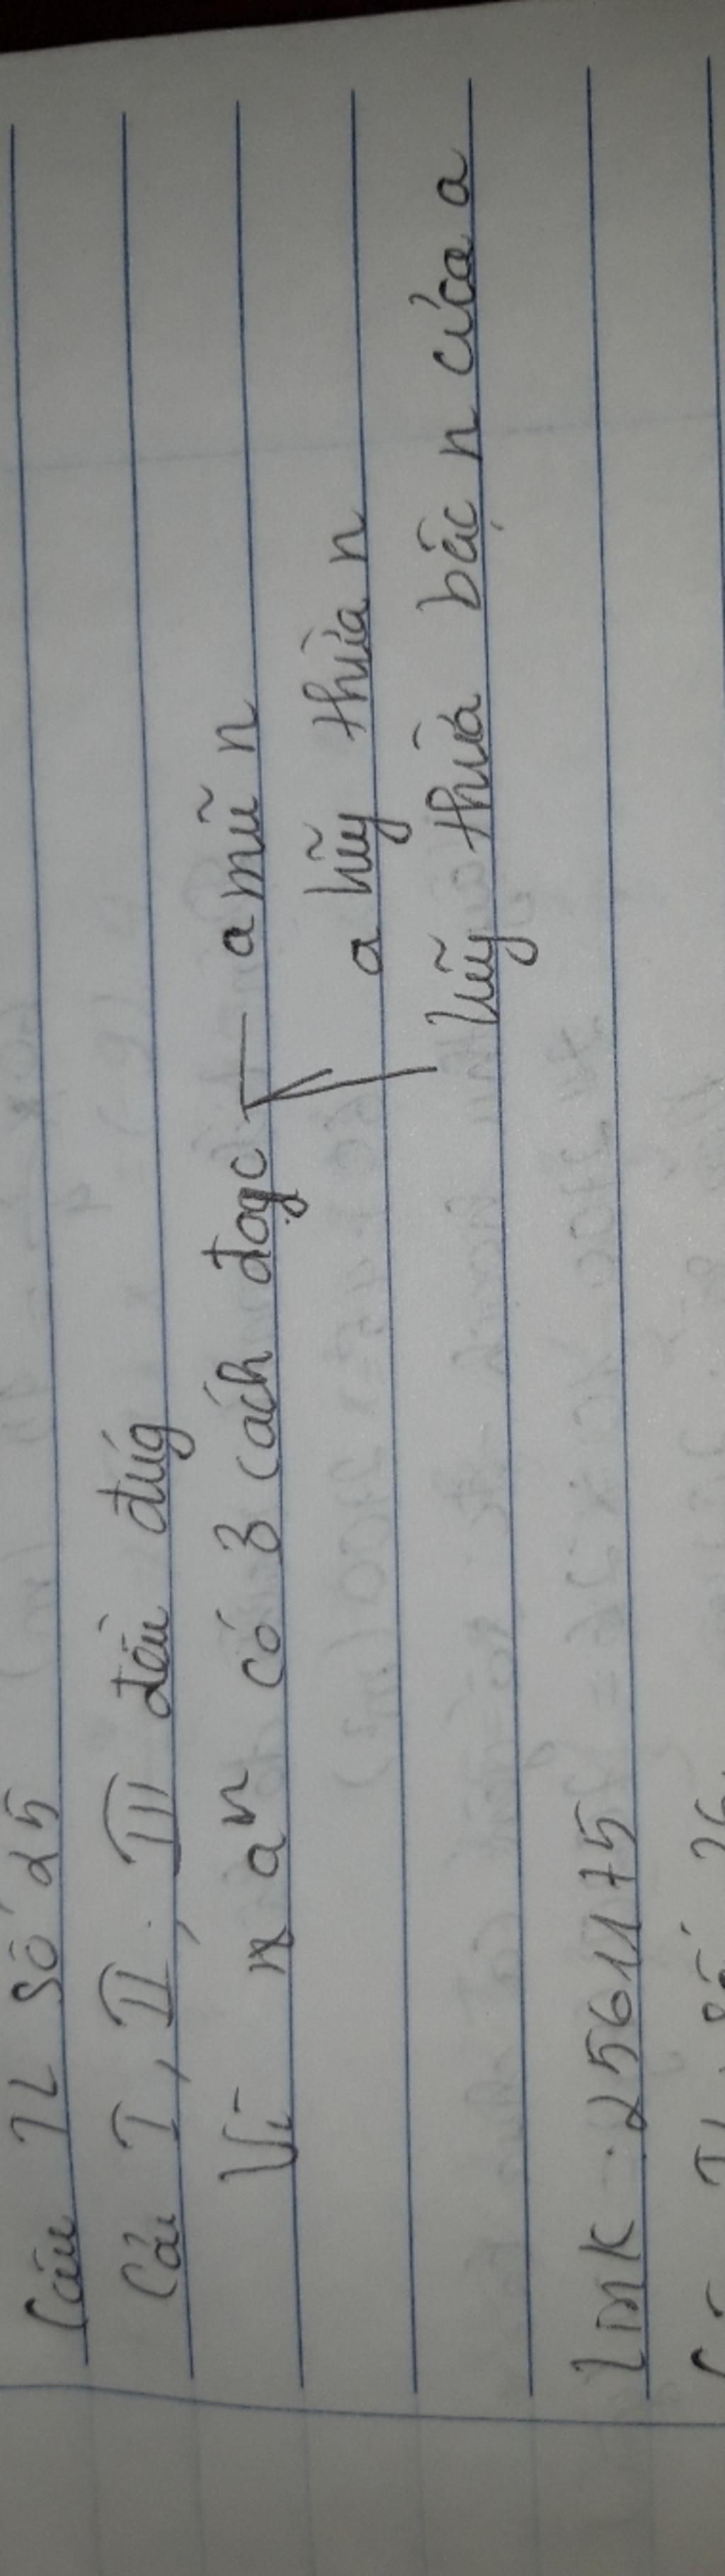 Câu TL số 25
Cả I, II, III đều đúg
Vì aⁿ có 3 cách đọc a mũ n
a lũy thừa n
lũy thừa bậc n của a
Link: 2561175